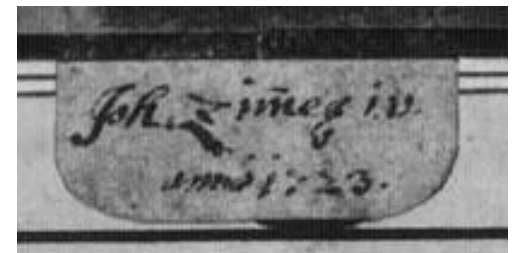 Joh. Zim̄eg i.v.
anno 1723.